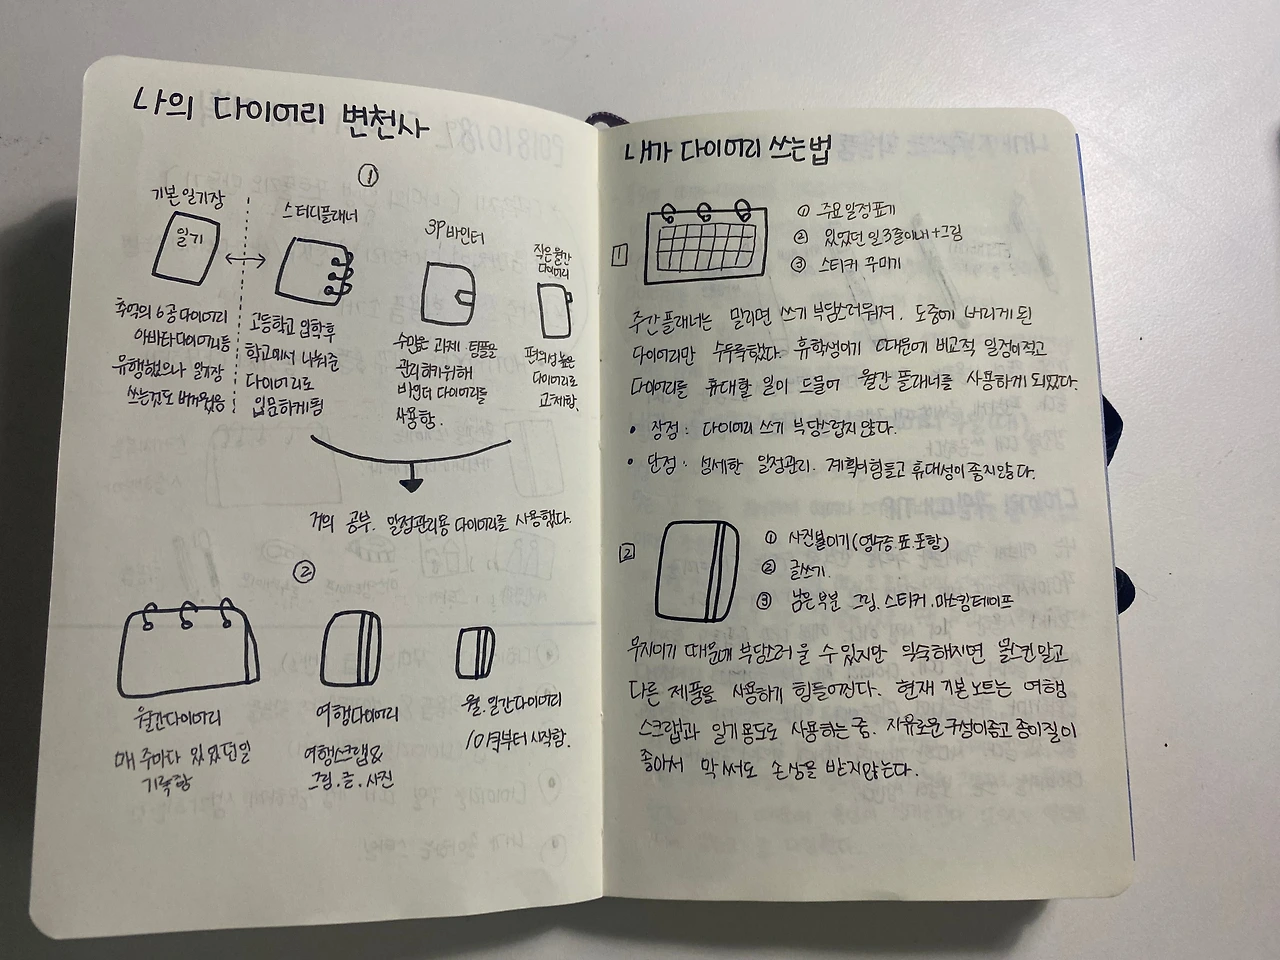 나의 다이어리 변천사
①
기본 일기장
일기
추억의 6공 다이어리
아바타 다이어리 등
유행했으나 일기장
쓰는것도 버거웠음
스터디플래너
고등학교 입학 후
학교에서 나눠준
다이어리로
입문하게 됨
3P 바인더
수많은 과제 팀플을
관리하기 위해
바인더 다이어리를
사용함.
작은 월간
다이어리
편의성 높은
다이어리로
교체함.
거의 공부. 일정관리용 다이어리를 사용했다.
②
월간다이어리
매 주마다 있었던 일
기록함
여행다이어리
여행스크랩&
그림.글.사진
월.일간다이어리
10월부터 시작함.
내가 다이어리 쓰는 법
1
① 주요일정표기
② 있었던 일 3줄이내+그림
③ 스티커 꾸미기
주간 플래너는 밀리면 쓰기 부담스러워져. 도중에 버리게 된
다이어리만 수두룩했다. 휴학생이기 때문에 비교적 일정이 적고
다이어리를 휴대할 일이 드물어 월간 플래너를 사용하게 되었다.
• 장점: 다이어리 쓰기 부담스럽지 않다.
• 단점: 섬세한 일정관리. 계획이 힘들고 휴대성이 좋지 않다.
2
① 사진붙이기(영수증.표.포함)
② 글쓰기.
③ 남은 부분 그림.스티커.마스킹테이프
무지이기 때문에 부담스러울 수 있지만 익숙해지면 몰스킨 말고
다른 제품을 사용하기 힘들어진다. 현재 기본 노트는 여행
스크랩과 일기 용도로 사용하는 중. 자유로운 구성이 좋고 종이질이
좋아서 막 써도 손상을 받지 않는다.